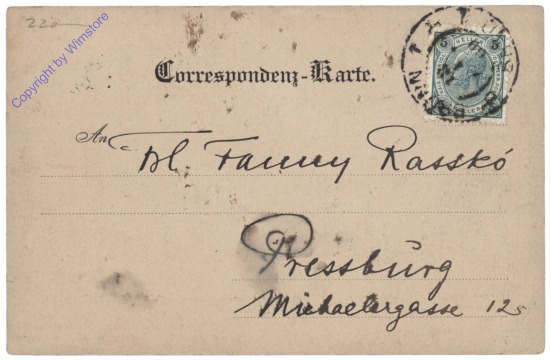 220
Copyright by Wimstore
Correspondenz-Karte.
An
Fanny Rasskó
Pressburg
Michaelergasse 12